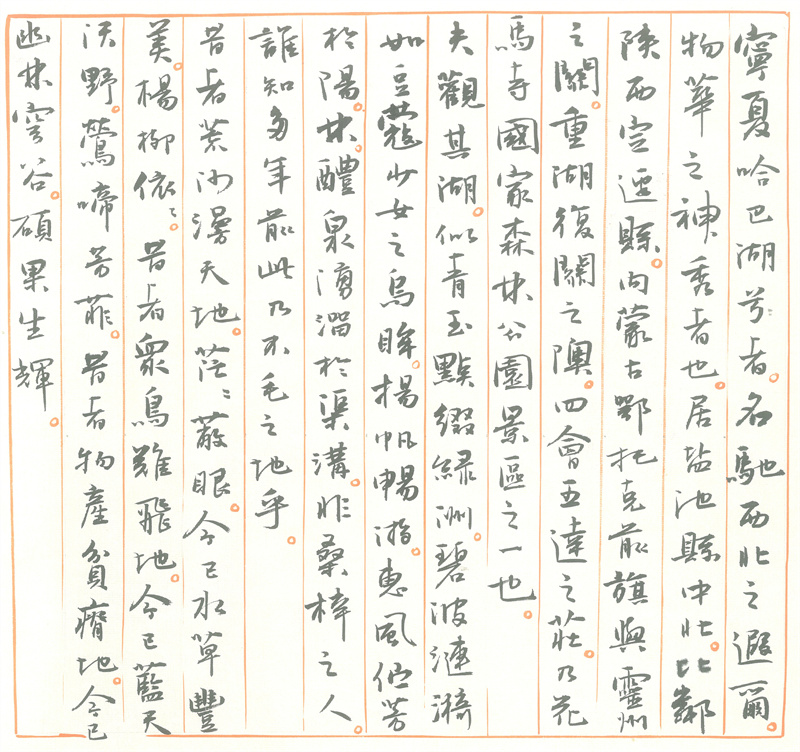 寧夏哈巴湖兮者。名馳西北之遐爾
物華之神秀者也。居盐池縣中北。比鄰
陝西定邊縣。内蒙古鄂托克前旗與靈州
之關。重湖復關之隩。四會五達之莊。乃花
馬寺國家森林公園景區之一也。
夫觀其湖。似青玉點綴緑洲。碧波漣漪
如豆蔻少女之烏眸。揚帆暢游。惠風佈芳
於陽林。醴泉湧溜於渠溝。非桑梓之人。
誰知多年前此乃不毛之地乎。
昔者荒沙漫天地。茫〻蔽眼。今已水草豐
美。楊柳依〻。昔者衆鳥難飛地。今已藍天
沃野。鶯啼芳菲。昔者物產貧瘠地。今已
幽林空谷。碩果生輝。